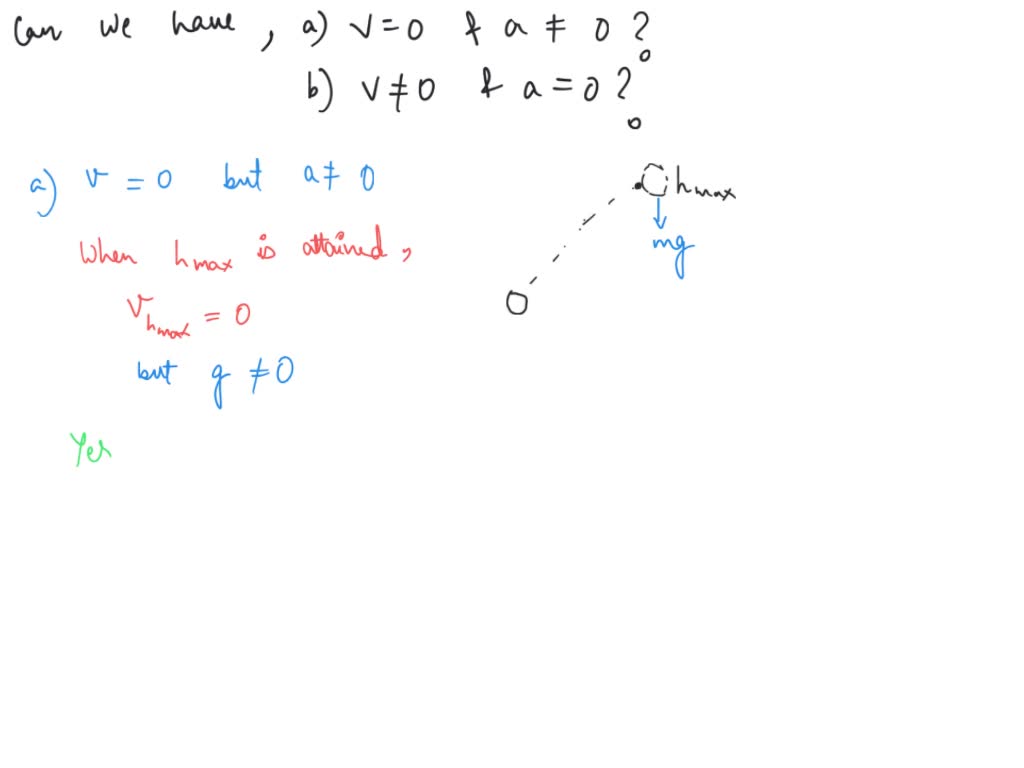 Can we have, a) v = 0 & a ≠ 0 ?
b) v ≠ 0 & a = 0 ?
a) v = 0 but a ≠ 0
When h max is attained,
v h max = 0
but g ≠ 0
Yes
h max
mg